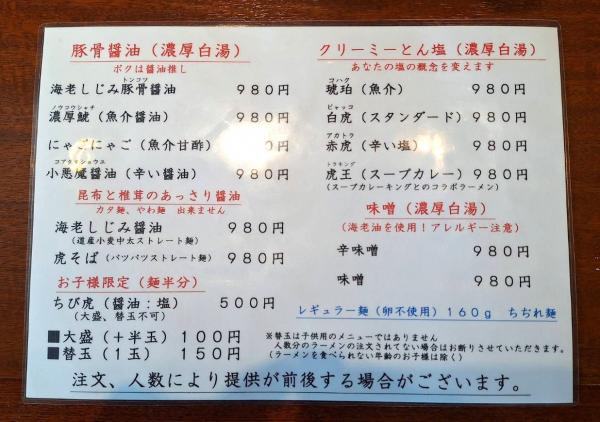 豚骨醤油(濃厚白湯)
ボクは醤油推し
トンコツ
海老しじみ豚骨醤油 980円
ノウコウシャチ
濃厚鯱(魚介醤油) 980円
にゃごにゃご(魚介甘酢) 980円
コアクマショウユ
小悪魔醤油(辛い醤油) 980円
昆布と椎茸のあっさり醤油
カタ麺、やわ麺 出来ません
海老しじみ醤油 980円
(道産小麦中太ストレート麺)
虎そば(パツパツストレート麺) 980円
お子様限定(麺半分)
ちび虎(醤油:塩) 500円
(大盛、替玉不可)
■大盛(+半玉) 100円
■替玉(1玉) 150円
クリーミーとん塩(濃厚白湯)
あなたの塩の概念を変えます
コハク
琥珀(魚介) 980円
ビャッコ
白虎(スタンダード) 980円
アカトラ
赤虎(辛い塩) 980円
トラキング
虎王(スープカレー) 980円
(スープカレーキングとのコラボラーメン)
味噌(濃厚白湯)
(海老油を使用!アレルギー注意)
辛味噌 980円
味噌 980円
レギュラー麺(卵不使用)160g ちぢれ麺
※替玉は子供用のメニューではありません
人数分のラーメンの注文されてない場合はお断りさせていただきます。
(ラーメンを食べられない年齢のお子様は除く)
注文、人数により提供が前後する場合がございます。